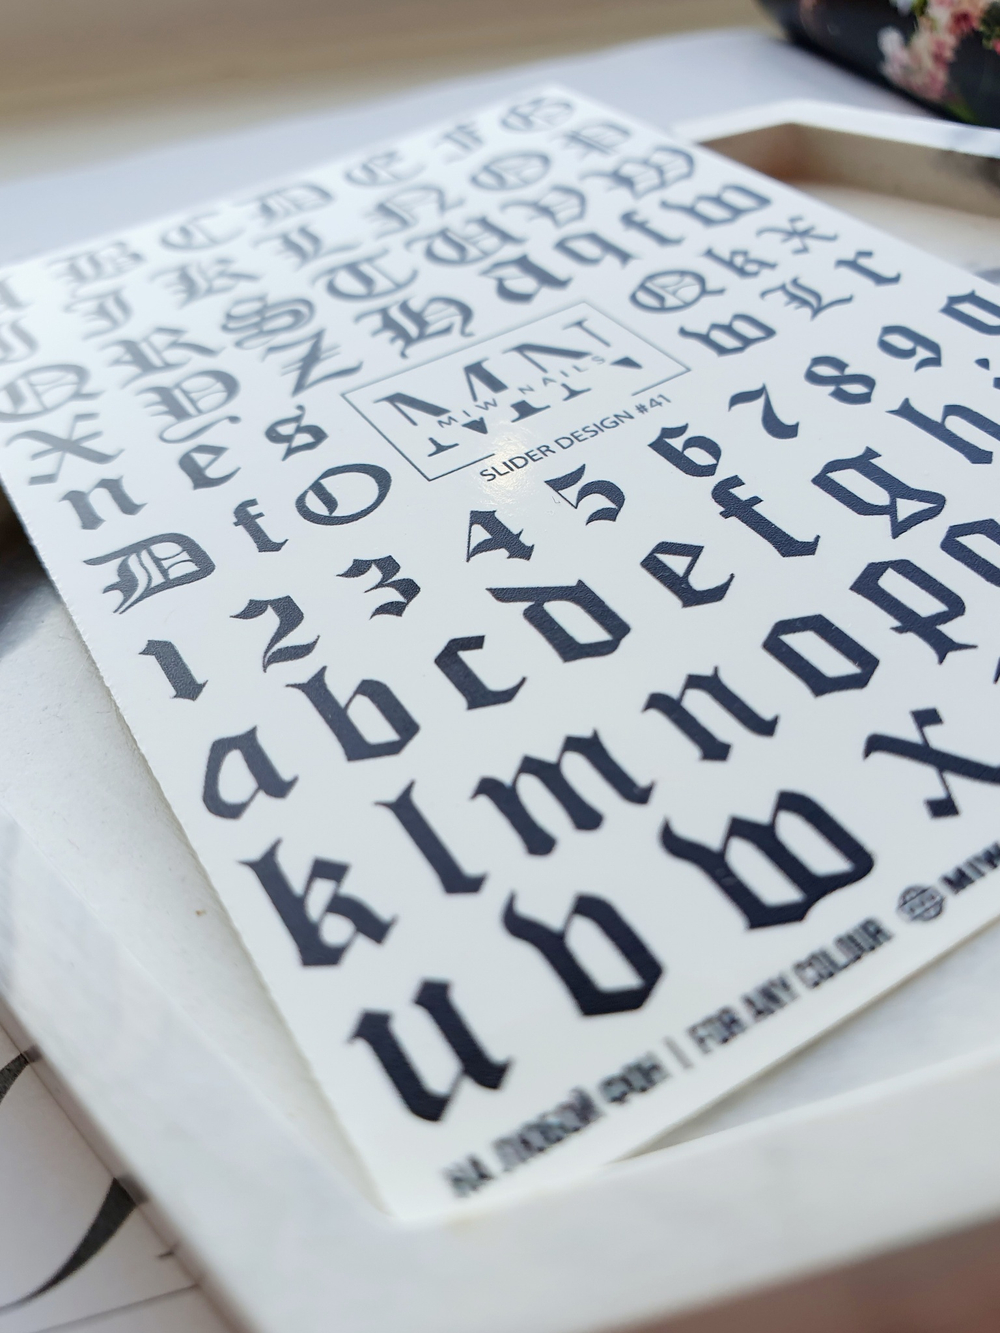 A B C D E F G
I J K L N O P
Q R S T U V W
X Y Z H a q f w
n e s
D f O
MN
MIW NAILS
SLIDER DESIGN #41
Q k x
w L r
1 2 3 4 5 6 7 8 9 0
a b c d e f g h i
k l m n o p q
u v w x
НА ЛЮБОЙ ФОН | FOR ANY COLOUR MIW